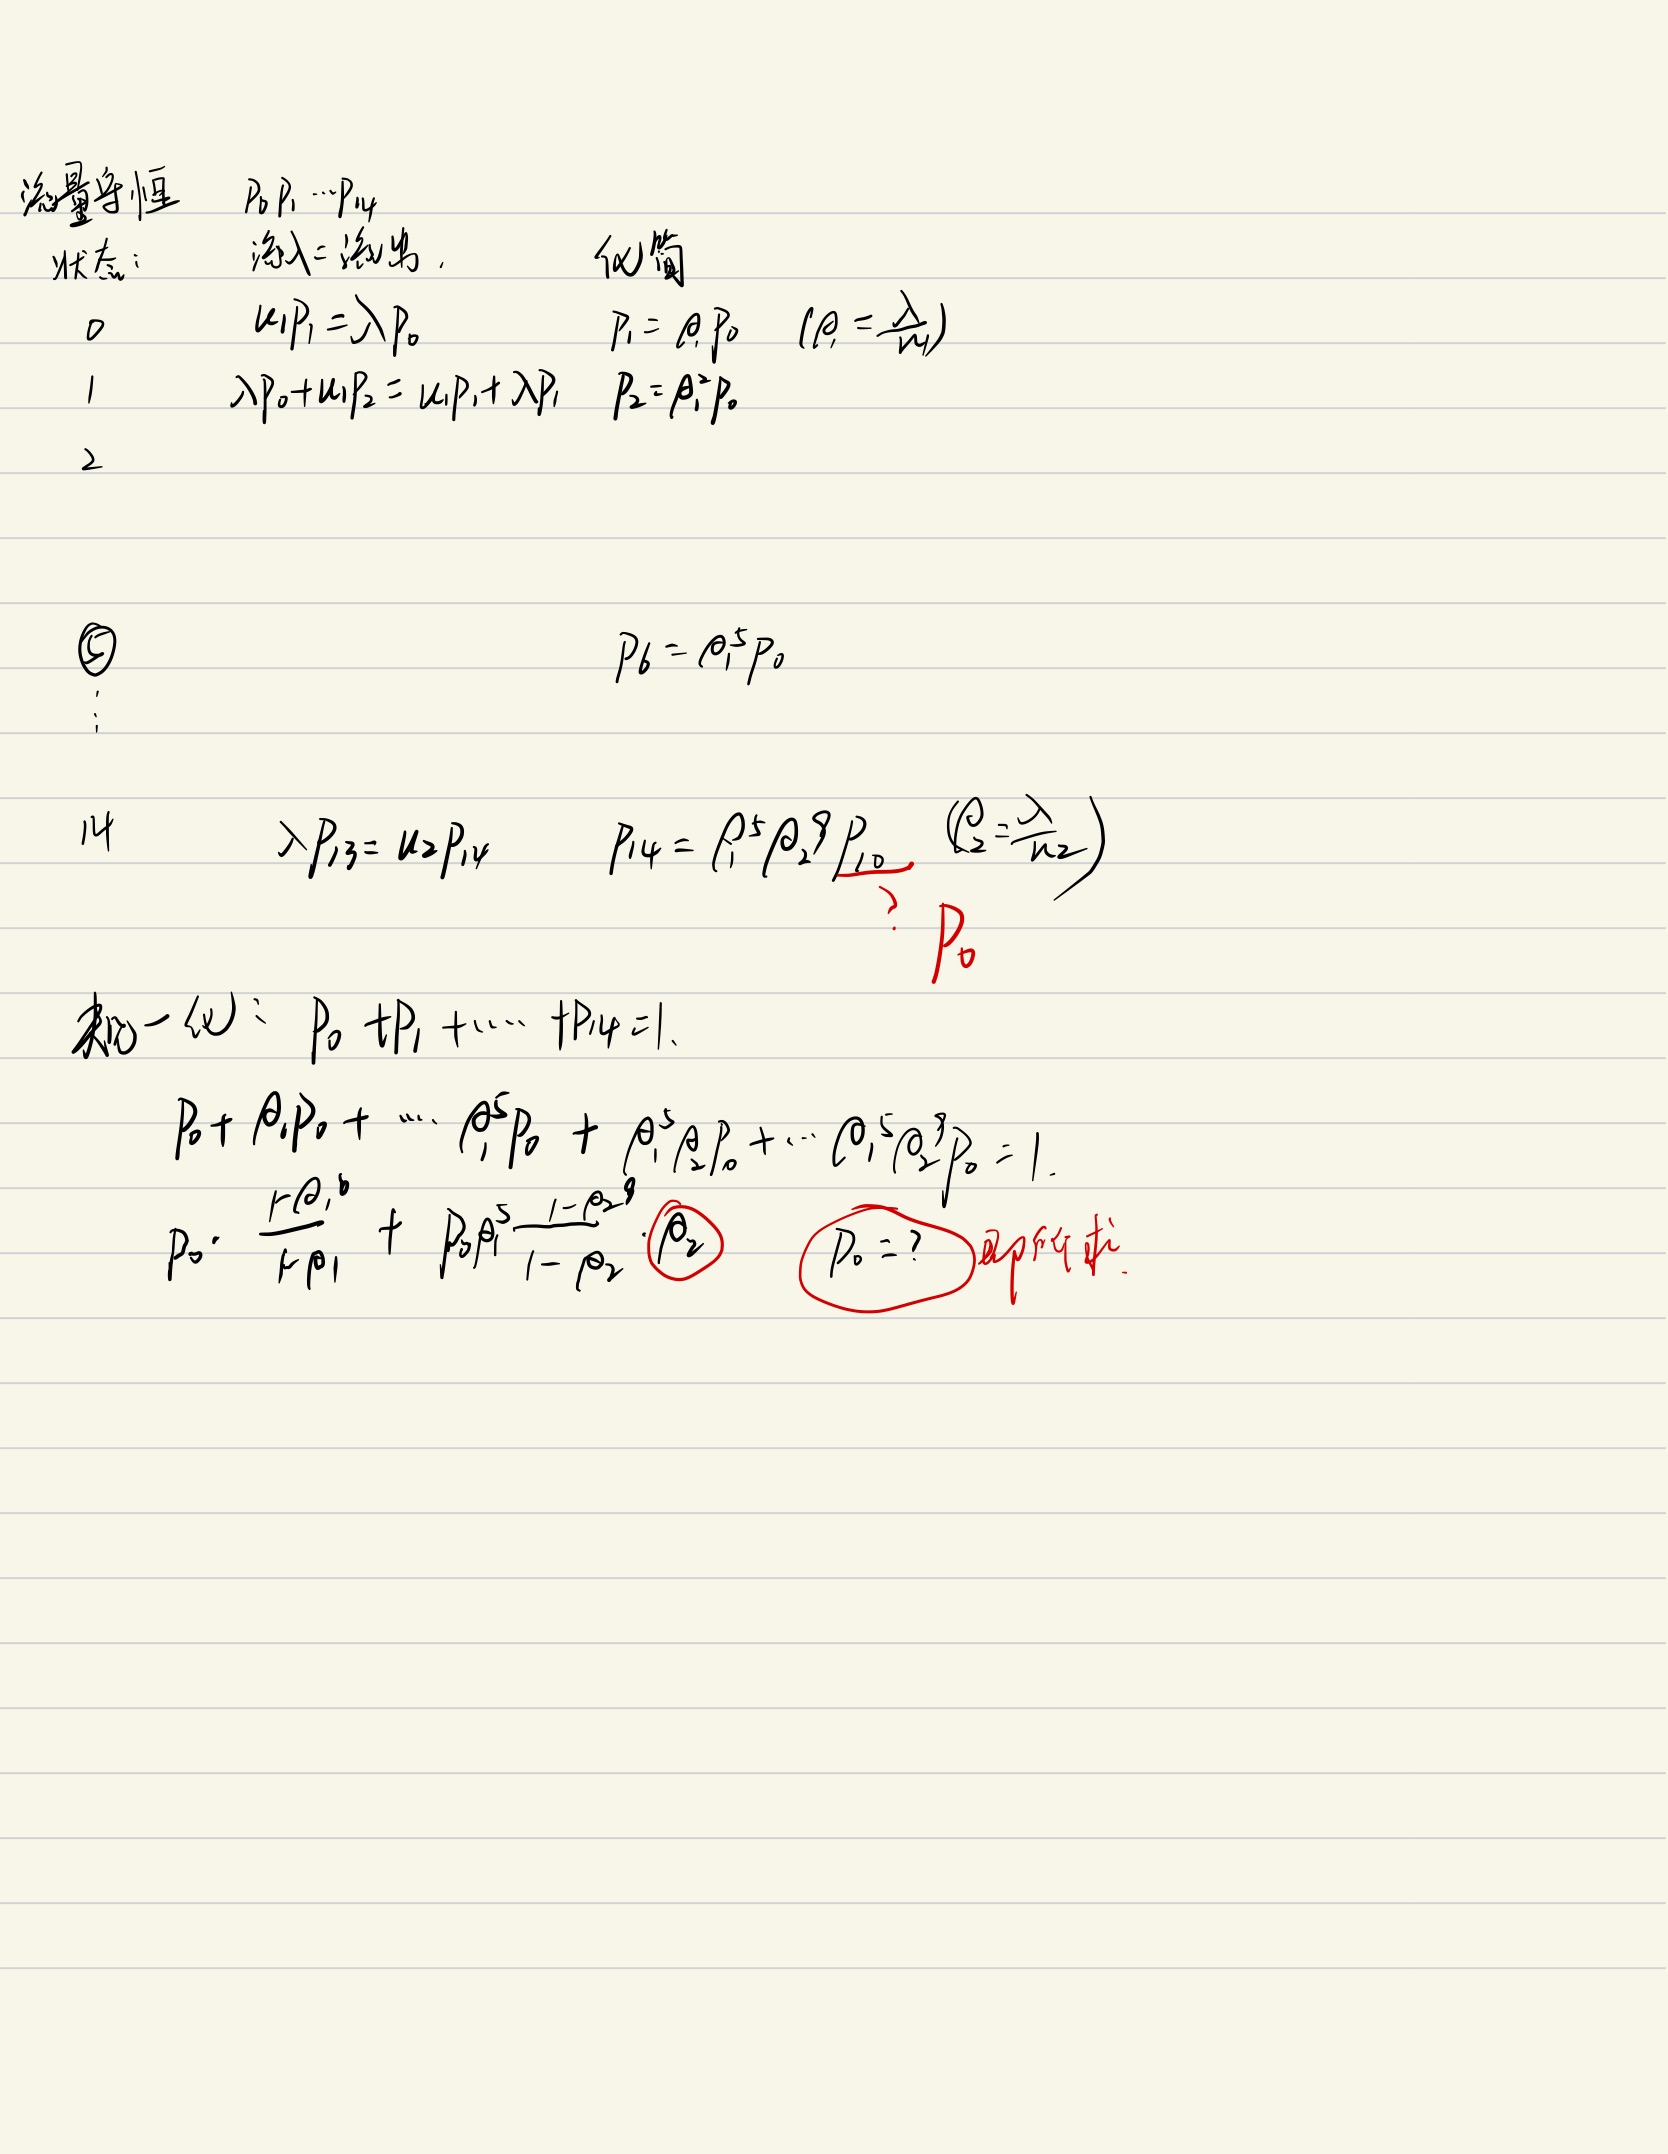 流量守恒 P₀ P₁ ⋯ P₁₄
状态: 流入=流出. 化简
0 u₁P₁=λP₀ P₁=ρ₁P₀ (ρ₁=λ/u₁)
1 λP₀+u₁P₂=u₁P₁+λP₁ P₂=ρ₁²P₀
2
⑤ P₆=ρ₁⁵P₀
⋮
14 λP₁₃=u₂P₁₄ P₁₄=ρ₁⁵ρ₂⁹P₁₀ (ρ₂=λ/u₂)
? P₀
一化: P₀+P₁+⋯⋯+P₁₄=1.
P₀+ρ₁P₀+⋯ρ₁⁵P₀+ρ₁⁵ρ₂P₀+⋯ρ₁⁵ρ₂⁹P₀=1.
P₀·(1-ρ₁⁶)/(1-ρ₁)+P₀ρ₁⁵(1-ρ₂⁹)/(1-ρ₂)·ρ₂ P₀=? 即所求.